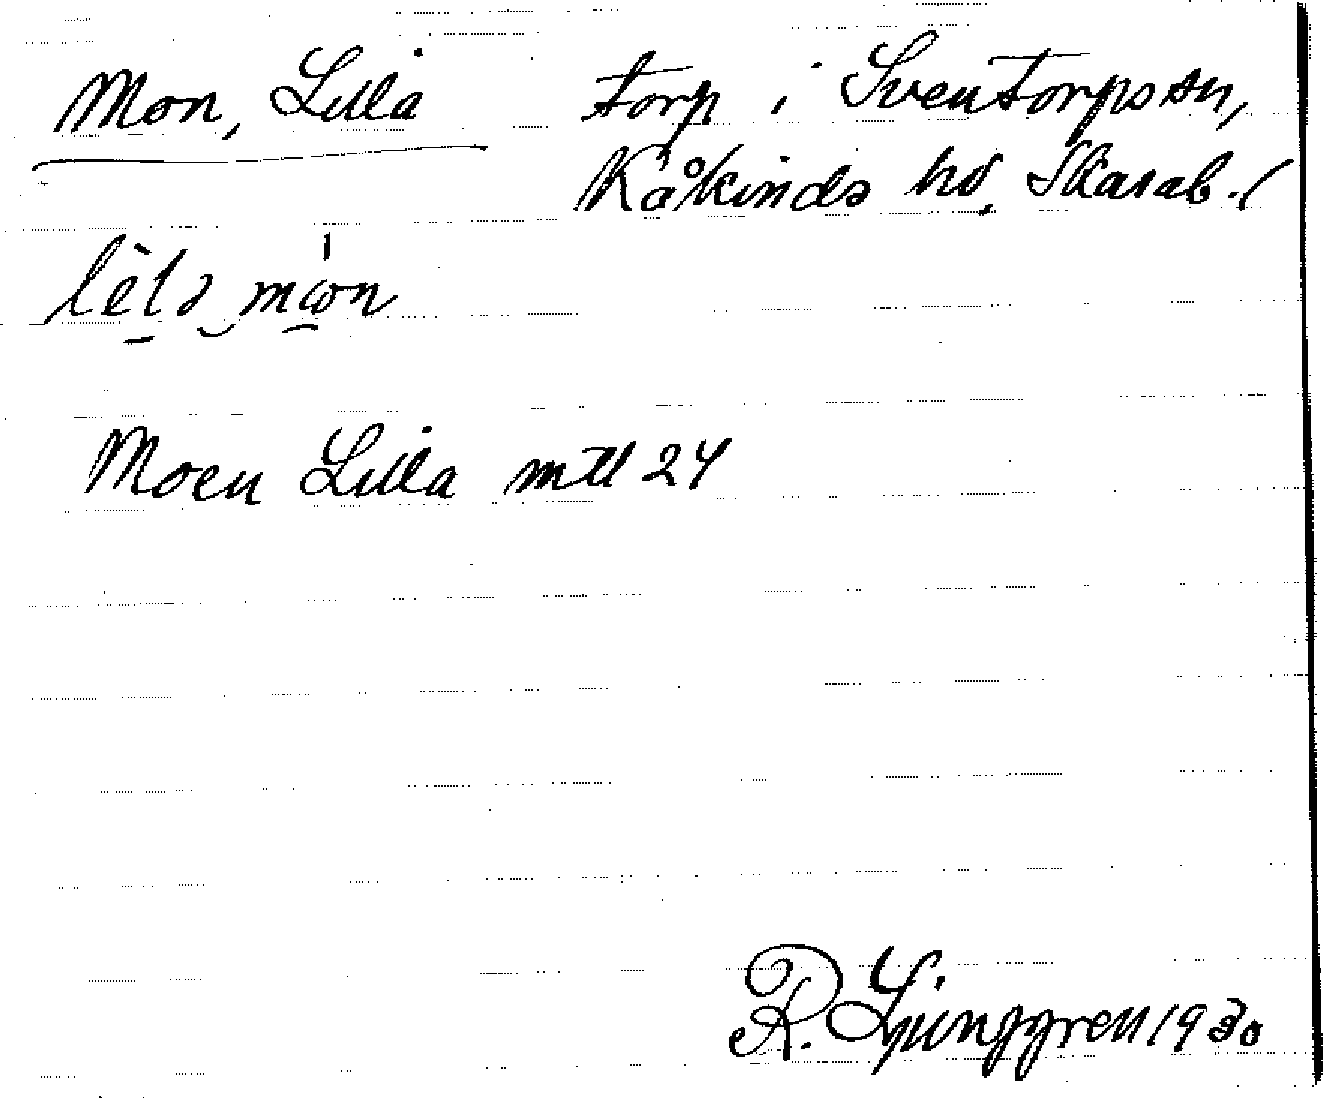 Mon, Lilla torp i Sventorps sn,
Kåkinds hd, Skarab. l
Moen Lilla mtl 24
R. Ljunggren 1930